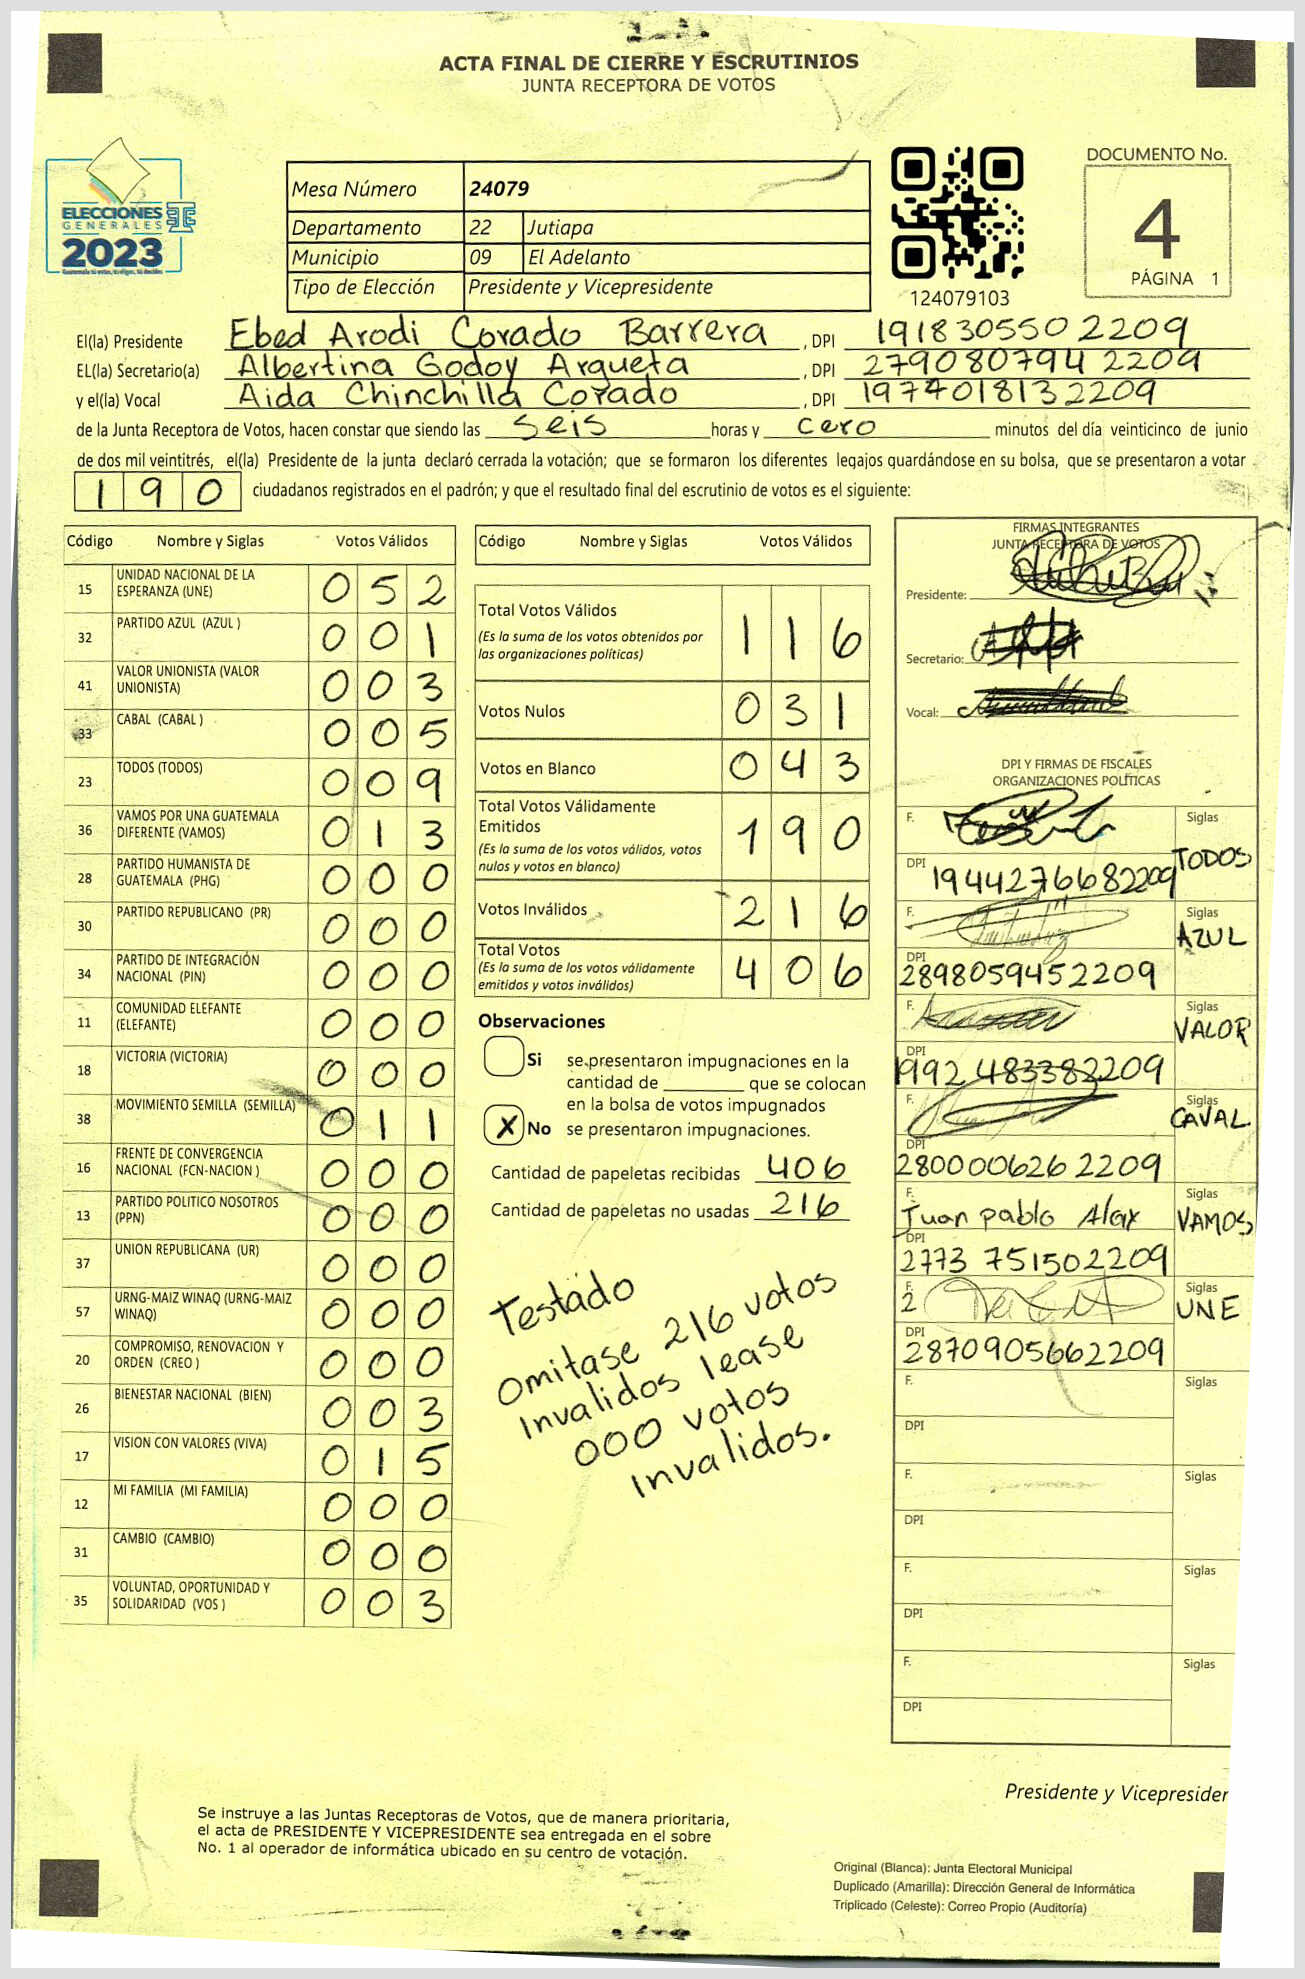 ACTA FINAL DE CIERRE Y ESCRUTINIOS
JUNTA RECEPTORA DE VOTOS
ELECCIONES
GENERALES
2023
Mesa Número 24079
Departamento 22 Jutiapa
Municipio 09 El Adelanto
Tipo de Elección Presidente y Vicepresidente
124079103
DOCUMENTO No.
4
PÁGINA 1
El(la) Presidente Ebed Arodi Corado Barrera , DPI 1918305502209
EL(la) Secretario(a) Albertina Godoy Argueta , DPI 2790807942209
y el(la) Vocal Aida Chinchilla Corado , DPI 1974018132209
de la Junta Receptora de Votos, hacen constar que siendo las seis horas y cero minutos del día veinticinco de junio
de dos mil veintitrés, el(la) Presidente de la junta declaró cerrada la votación; que se formaron los diferentes legajos guardándose en su bolsa, que se presentaron a votar
190 ciudadanos registrados en el padrón; y que el resultado final del escrutinio de votos es el siguiente:
Código Nombre y Siglas Votos Válidos
15 UNIDAD NACIONAL DE LA ESPERANZA (UNE) 052
32 PARTIDO AZUL (AZUL ) 001
41 VALOR UNIONISTA (VALOR UNIONISTA) 003
33 CABAL (CABAL ) 005
23 TODOS (TODOS) 009
36 VAMOS POR UNA GUATEMALA DIFERENTE (VAMOS) 013
28 PARTIDO HUMANISTA DE GUATEMALA (PHG) 000
30 PARTIDO REPUBLICANO (PR) 000
34 PARTIDO DE INTEGRACIÓN NACIONAL (PIN) 000
11 COMUNIDAD ELEFANTE (ELEFANTE) 000
18 VICTORIA (VICTORIA) 000
38 MOVIMIENTO SEMILLA (SEMILLA) 011
16 FRENTE DE CONVERGENCIA NACIONAL (FCN-NACION ) 000
13 PARTIDO POLITICO NOSOTROS (PPN) 000
37 UNION REPUBLICANA (UR) 000
57 URNG-MAIZ WINAQ (URNG-MAIZ WINAQ) 000
20 COMPROMISO, RENOVACION Y ORDEN (CREO ) 000
26 BIENESTAR NACIONAL (BIEN) 003
17 VISION CON VALORES (VIVA) 015
12 MI FAMILIA (MI FAMILIA) 000
31 CAMBIO (CAMBIO) 000
35 VOLUNTAD, OPORTUNIDAD Y SOLIDARIDAD (VOS ) 003
Código Nombre y Siglas Votos Válidos
Total Votos Válidos 116
(Es la suma de los votos obtenidos por
las organizaciones políticas)
Votos Nulos 031
Votos en Blanco 043
Total Votos Válidamente
Emitidos 190
(Es la suma de los votos válidos, votos
nulos y votos en blanco)
Votos Inválidos 216
Total Votos 406
(Es la suma de los votos válidamente
emitidos y votos inválidos)
Observaciones
Si se presentaron impugnaciones en la
cantidad de ________ que se colocan
en la bolsa de votos impugnados
X No se presentaron impugnaciones.
Cantidad de papeletas recibidas 406
Cantidad de papeletas no usadas 216
Testado
omitase 216 votos
invalidos lease
000 votos
invalidos.
FIRMAS INTEGRANTES
JUNTA RECEPTORA DE VOTOS
Presidente:
Secretario:
Vocal:
DPI Y FIRMAS DE FISCALES
ORGANIZACIONES POLÍTICAS
F. Siglas TODOS
DPI 1944276682209
F. Siglas AZUL
DPI 2898059452209
F. Siglas VALOR
DPI 1992483382209
F. Siglas CAVAL
DPI 2800006262209
F. Juan pablo Alax Siglas VAMOS
DPI 2773751502209
F. Siglas UNE
DPI 2870905662209
F. Siglas
DPI
F. Siglas
DPI
F. Siglas
DPI
F. Siglas
DPI
Presidente y Vicepresiden
Se instruye a las Juntas Receptoras de Votos, que de manera prioritaria,
el acta de PRESIDENTE Y VICEPRESIDENTE sea entregada en el sobre
No. 1 al operador de informática ubicado en su centro de votación.
Original (Blanca): Junta Electoral Municipal
Duplicado (Amarilla): Dirección General de Informática
Triplicado (Celeste): Correo Propio (Auditoría)